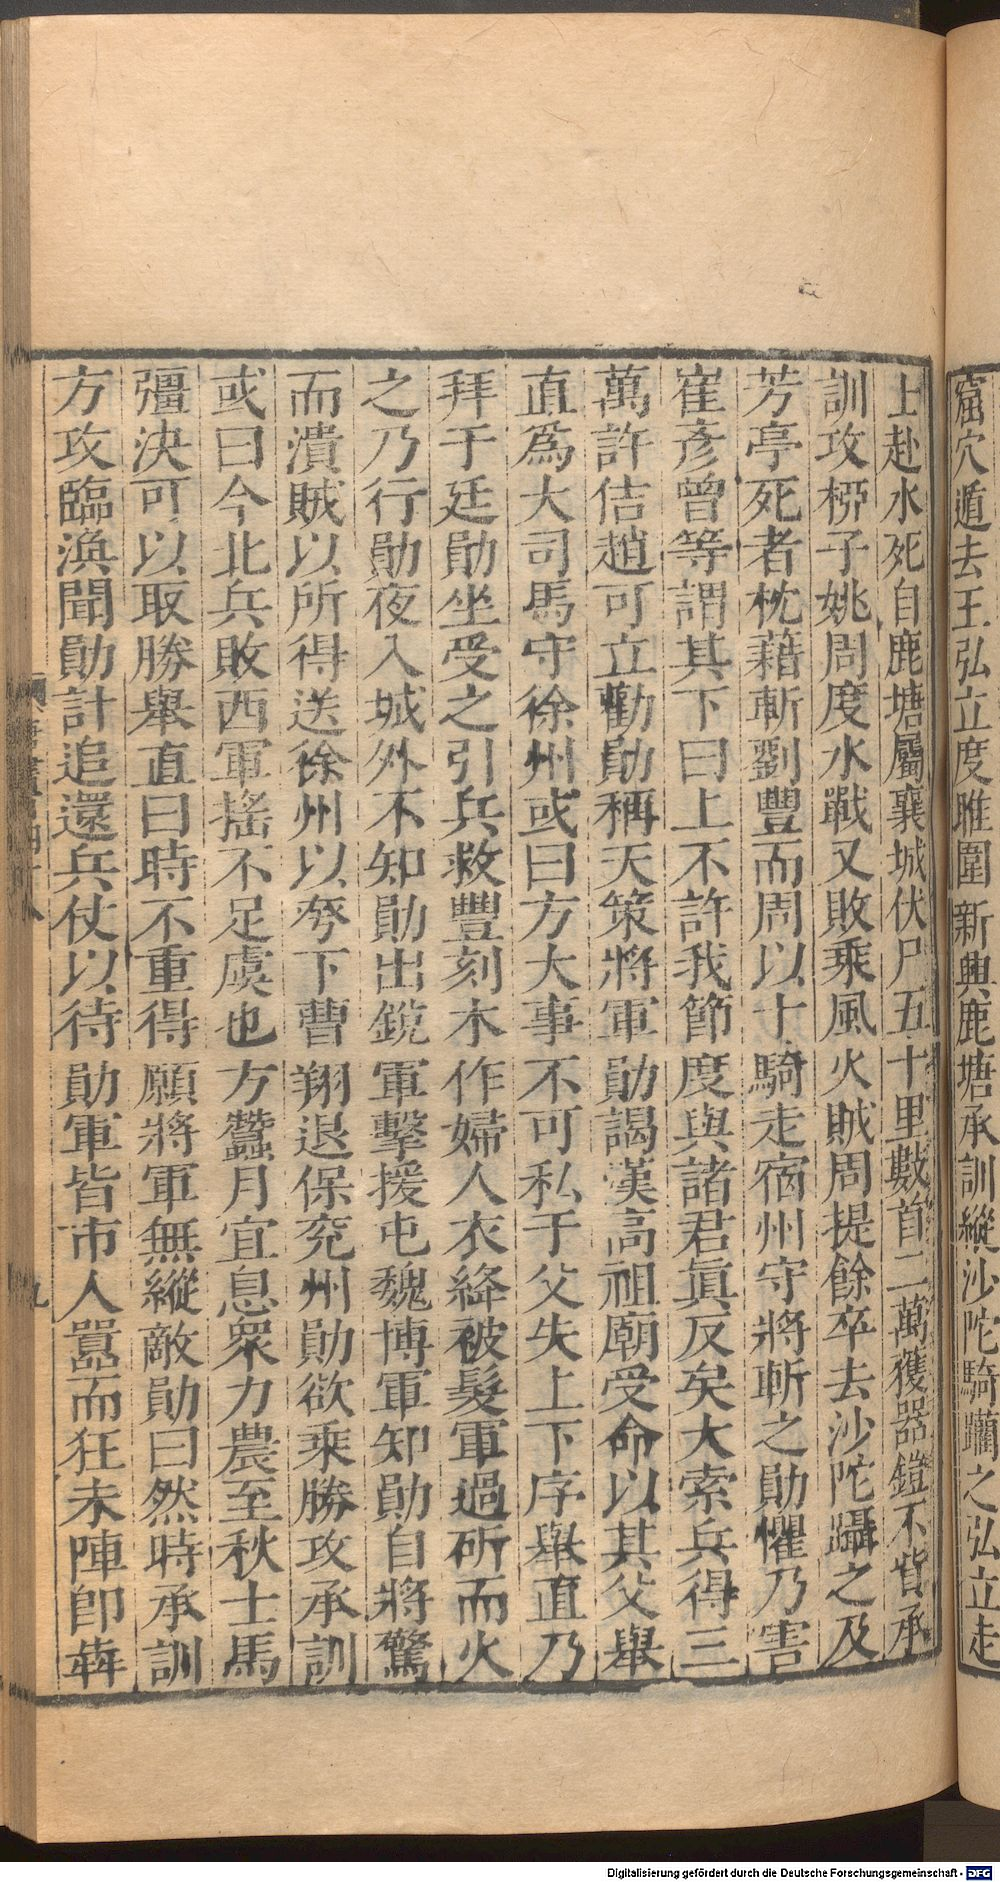 窟穴遁去王弘立度雎圍新興鹿塘承訓縱沙陀騎躪之弘立走
上赴水死自鹿塘屬襄城伏尸五十里數首二萬獲器鎧不貲承
訓攻桺子姚周度水戰又敗乘風火賊周提餘卒去沙陀躡之及
芳亭死者枕藉斬劉豐而周以十騎走宿州守將斬之勛懼乃害
崔彥曾等謂其下曰上不許我節度與諸君眞反矣大索兵得三
萬許佶趙可立勸勛稱天策將軍勛謁漢高祖廟受命以其父舉
直爲大司馬守徐州或曰方大事不可私于父失上下序舉直乃
拜于廷勛坐受之引兵救豐刻木作婦人衣絳被髮軍過斫而火
之乃行勛夜入城外不知勛出鏡軍擊援屯魏博軍知勛自將驚
而潰賊以所得送徐州以夸下曹翔退保兖州勛欲乘勝攻承訓
或曰今北兵敗西軍搖不足虞也方蠶月宜息衆力農至秋士馬
彊決可以取勝舉直曰時不重得願將軍無縱敵勛曰然時承訓
方攻臨渙聞勛計追還兵仗以待勛軍皆市人囂而狂未陣卽犇
九
Digitalisierung gefördert durch die Deutsche Forschungsgemeinschaft - DFG